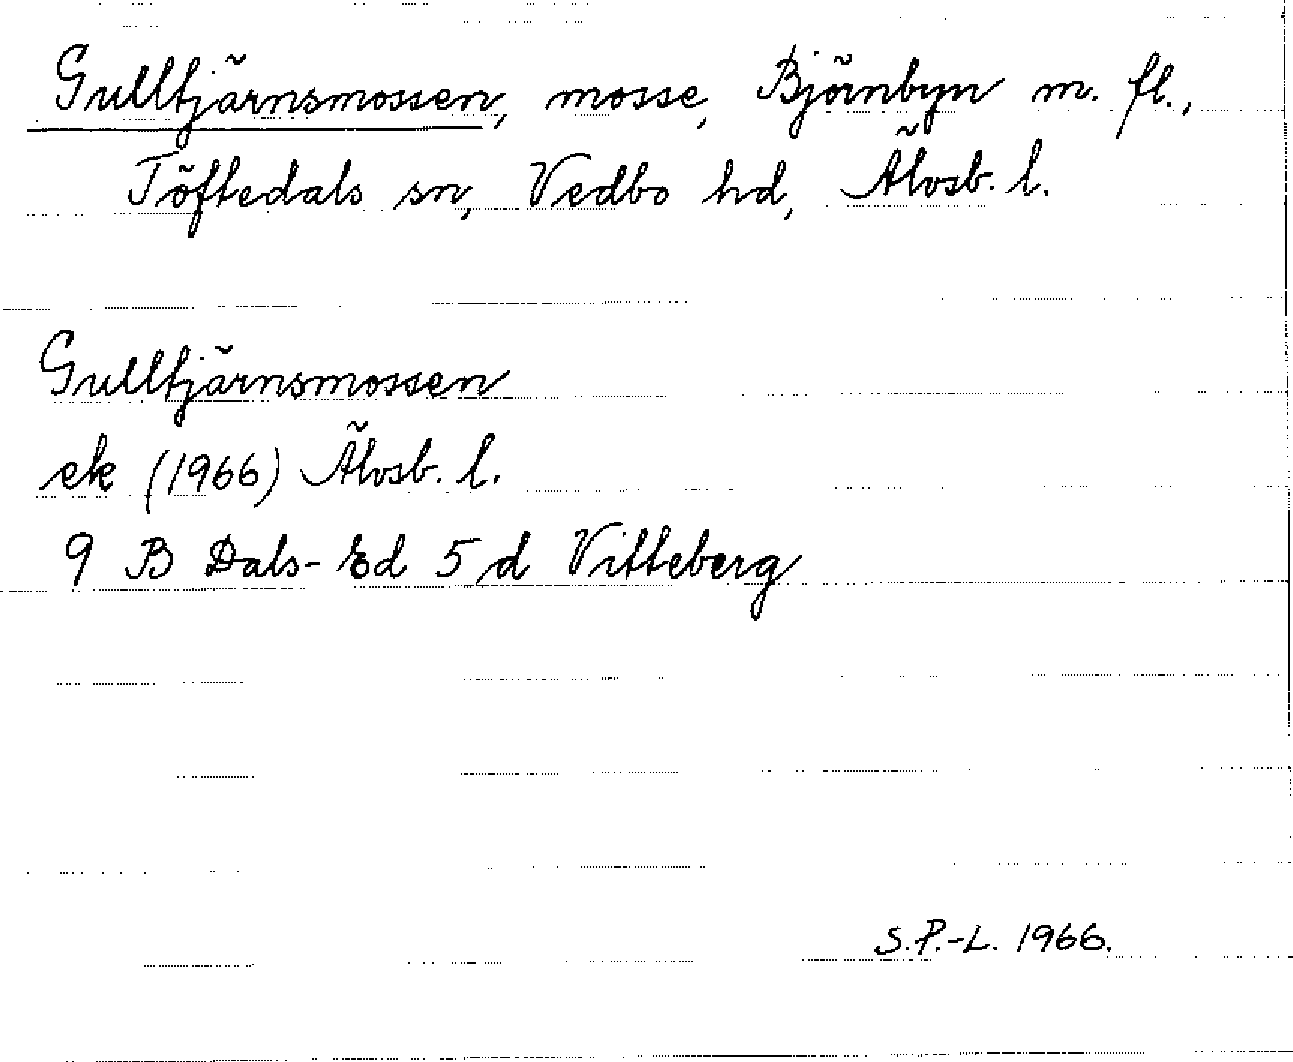 Gulltjärnsmossen, mosse, Björnbyn m. fl.,
Töftedals sn, Vedbo hd, Älvsb. l.
Gulltjärnsmossen
ek (1966) Älvsb. l.
9 B Dals-Ed 5 d Vitteberg
S.P.-L. 1966.